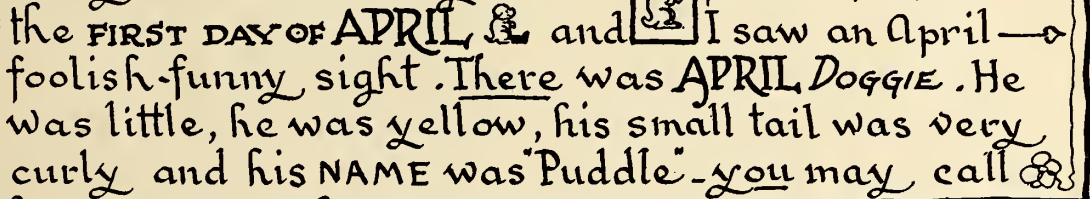 the FIRST DAY OF APRIL and I saw an April
foolish-funny sight. There was APRIL DOGGIE. He
was little, he was yellow, his small tail was very
curly and his NAME was "Puddle" - you may call